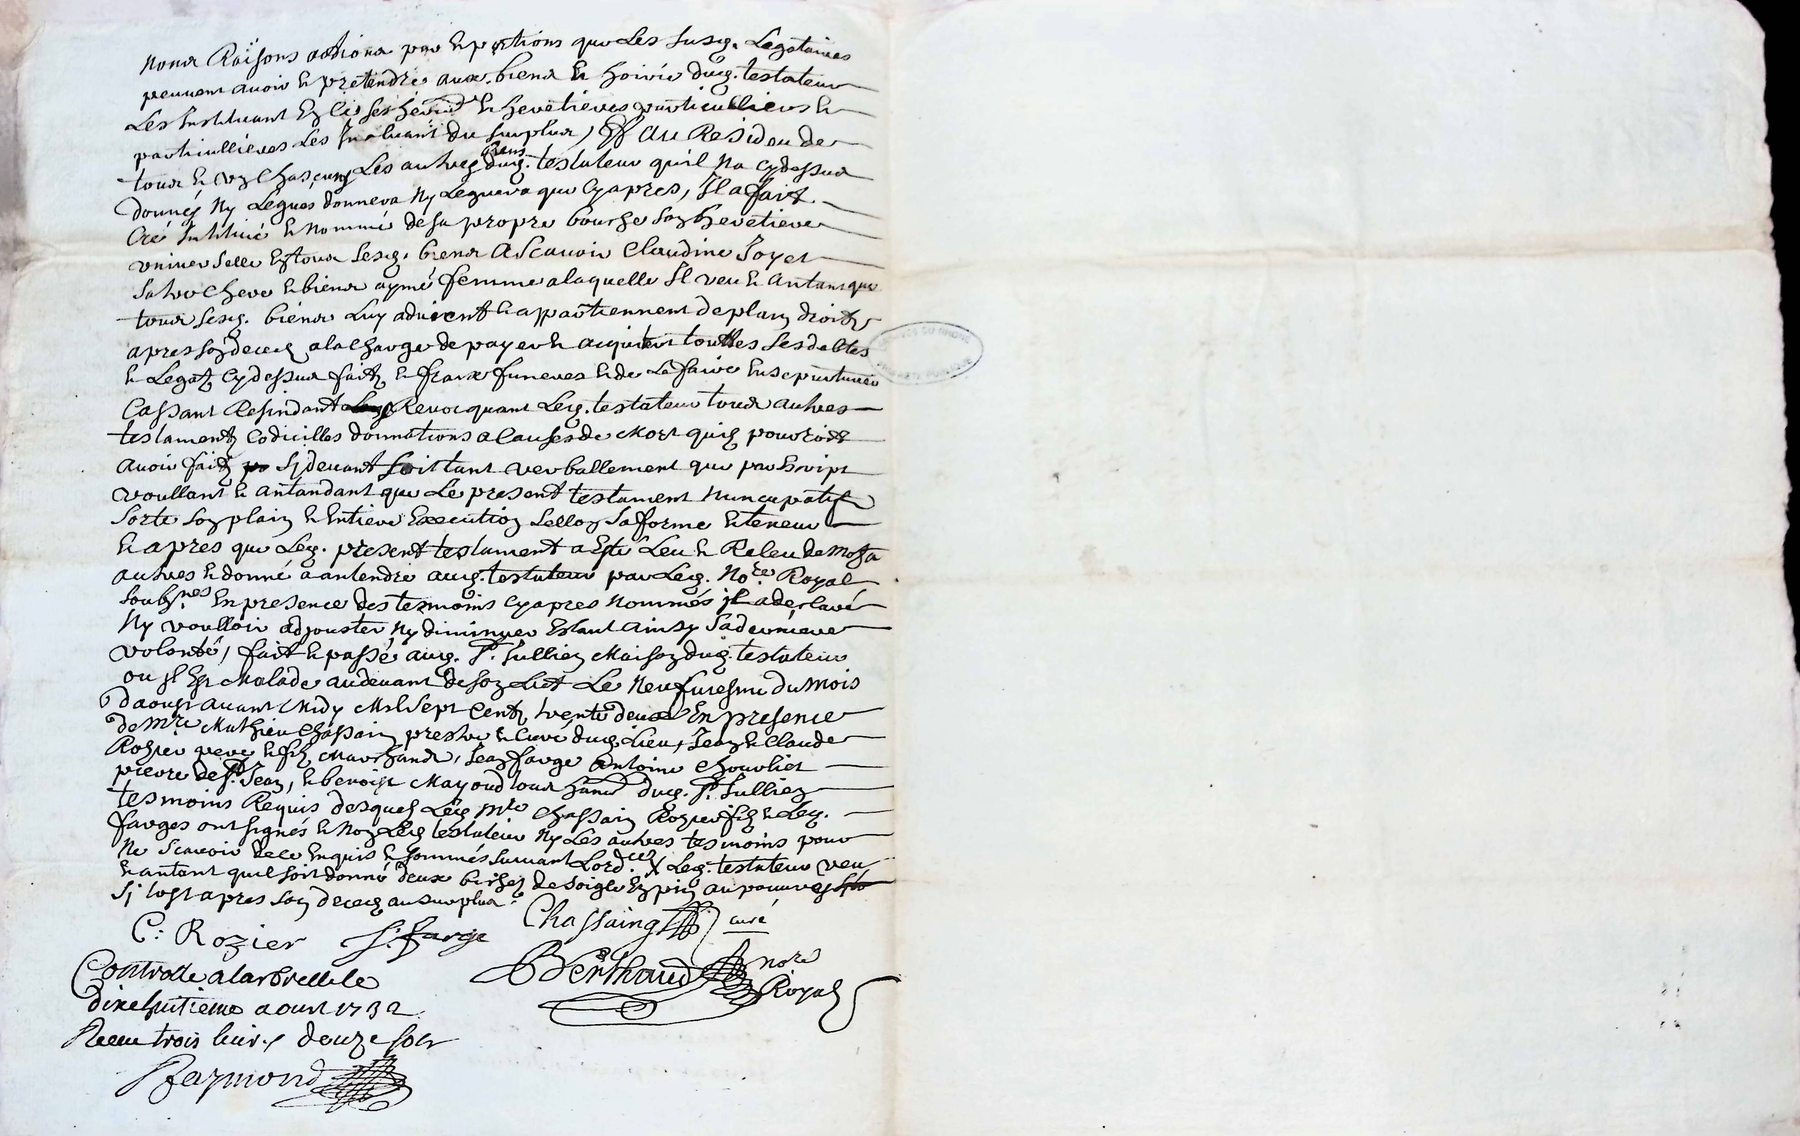 noms Raisons actions par et portions que Les susd. Legataires
peuvent avoir et pretendre aux biens et hoirie dud. testateur
Les Instituant En ce ses herit. et heretieres particulliers et
particullieres Les Incluant du surplus, Et Au Residu de
tous et un Chascuns Les autres biens dud. testateur quil Na cydessus
donnés Ny Legués donnera Ny Leguera que Cyapres, Il a fait
Cré Institué et nommé de sa propre bouche son heretiere
universelle En tous sesd. biens Ascavoir Claudine Joyet
sa tres chere et bien aymé femme a laquelle Il veut et Antant que
tous sesd. biens Luy advient et appartiennent de plain droit
apres son deced a la charge de payer et acquiter touttes ses debtes
et Legatz Cydessus faitz et fraix funeres et de Le faire Ensepulturer
Cassant Resindant Revocquant Led. testateur tous autres
testamentz Codicilles donnations a Causes de Mort quil pouroit
avoir faitz sy devant soit tant verballement que par Escript
voullant et antandant que Le present testament nuncupatif
sorte son plain et Entiere Execution sellon sa forme et teneur
et apres que Led. present testament a Esté Leu et Releu de mot a
autres et donné a antendre aud. testateur par Led. No.re Royal
soubs.nes En presence des tesmoins Cyapres nommés il a desclaré
Ny voulloir adjouster Ny diminuer Estant Ainsy sa derniere
volonté, fait et passé aud. St. Jullien Maison dud. testateur
ou Il Est Malade au devant de son Lict Le Neufviesme du mois
daoust avant Midy Mil sept Centz trente deux En presence
de m.re Mathieu Chassain prestre et Curé dud. Lieu, Jean et Claude
Rozier pere et filz Marchands, Jean farge Antoine Chouvliet
pierre de St. Jean, et benoist Mayoud tous habit. dud. St. Jullien
tesmoins Requis desquels Led. m.re Chassain Rozier filz et Led.
farges ont signés et Non Led. testateur Ny Les autres tesmoins pour
Ne scavoir de ce Enquis et sommés suivant Lord.ce X Led. testateur veut
et antant quil soit donné deux bichez de soigle En pin au pauvres
si tost apres son deced au surplus
C: Rozier J: farge Chassaing curé
Berthaud nore Royal
Controlle a larbrelle le
dixe huitieme aoust 1732
Receu trois livres douze sols
Raymond